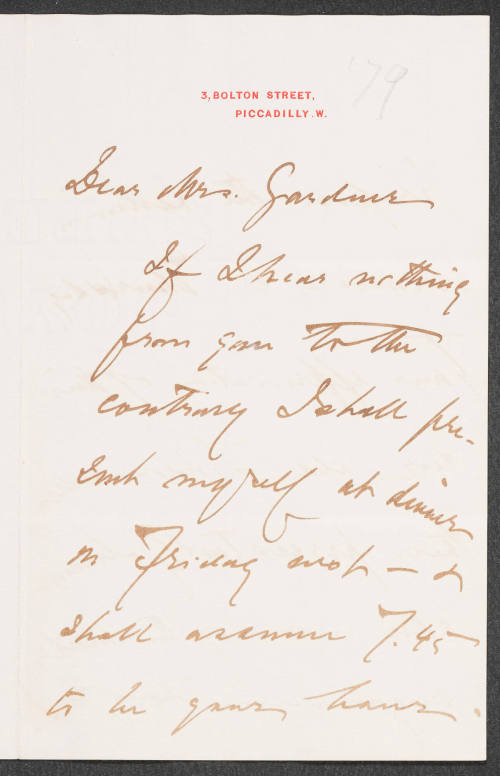 '79
3, BOLTON STREET,
PICCADILLY. W.
Dear Mrs. Gardner
If I hear nothing
from you to the
contrary I shall pre-
sent myself at dinner
on Friday next — &
shall assume 7.45
to be your hour.